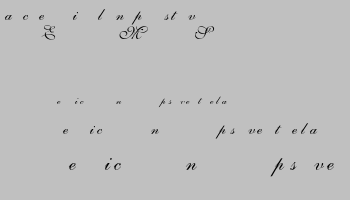 a c e i l n p s t v
E M S
e ic n ps ve t ela
e ic n ps ve t ela
e ic n ps ve